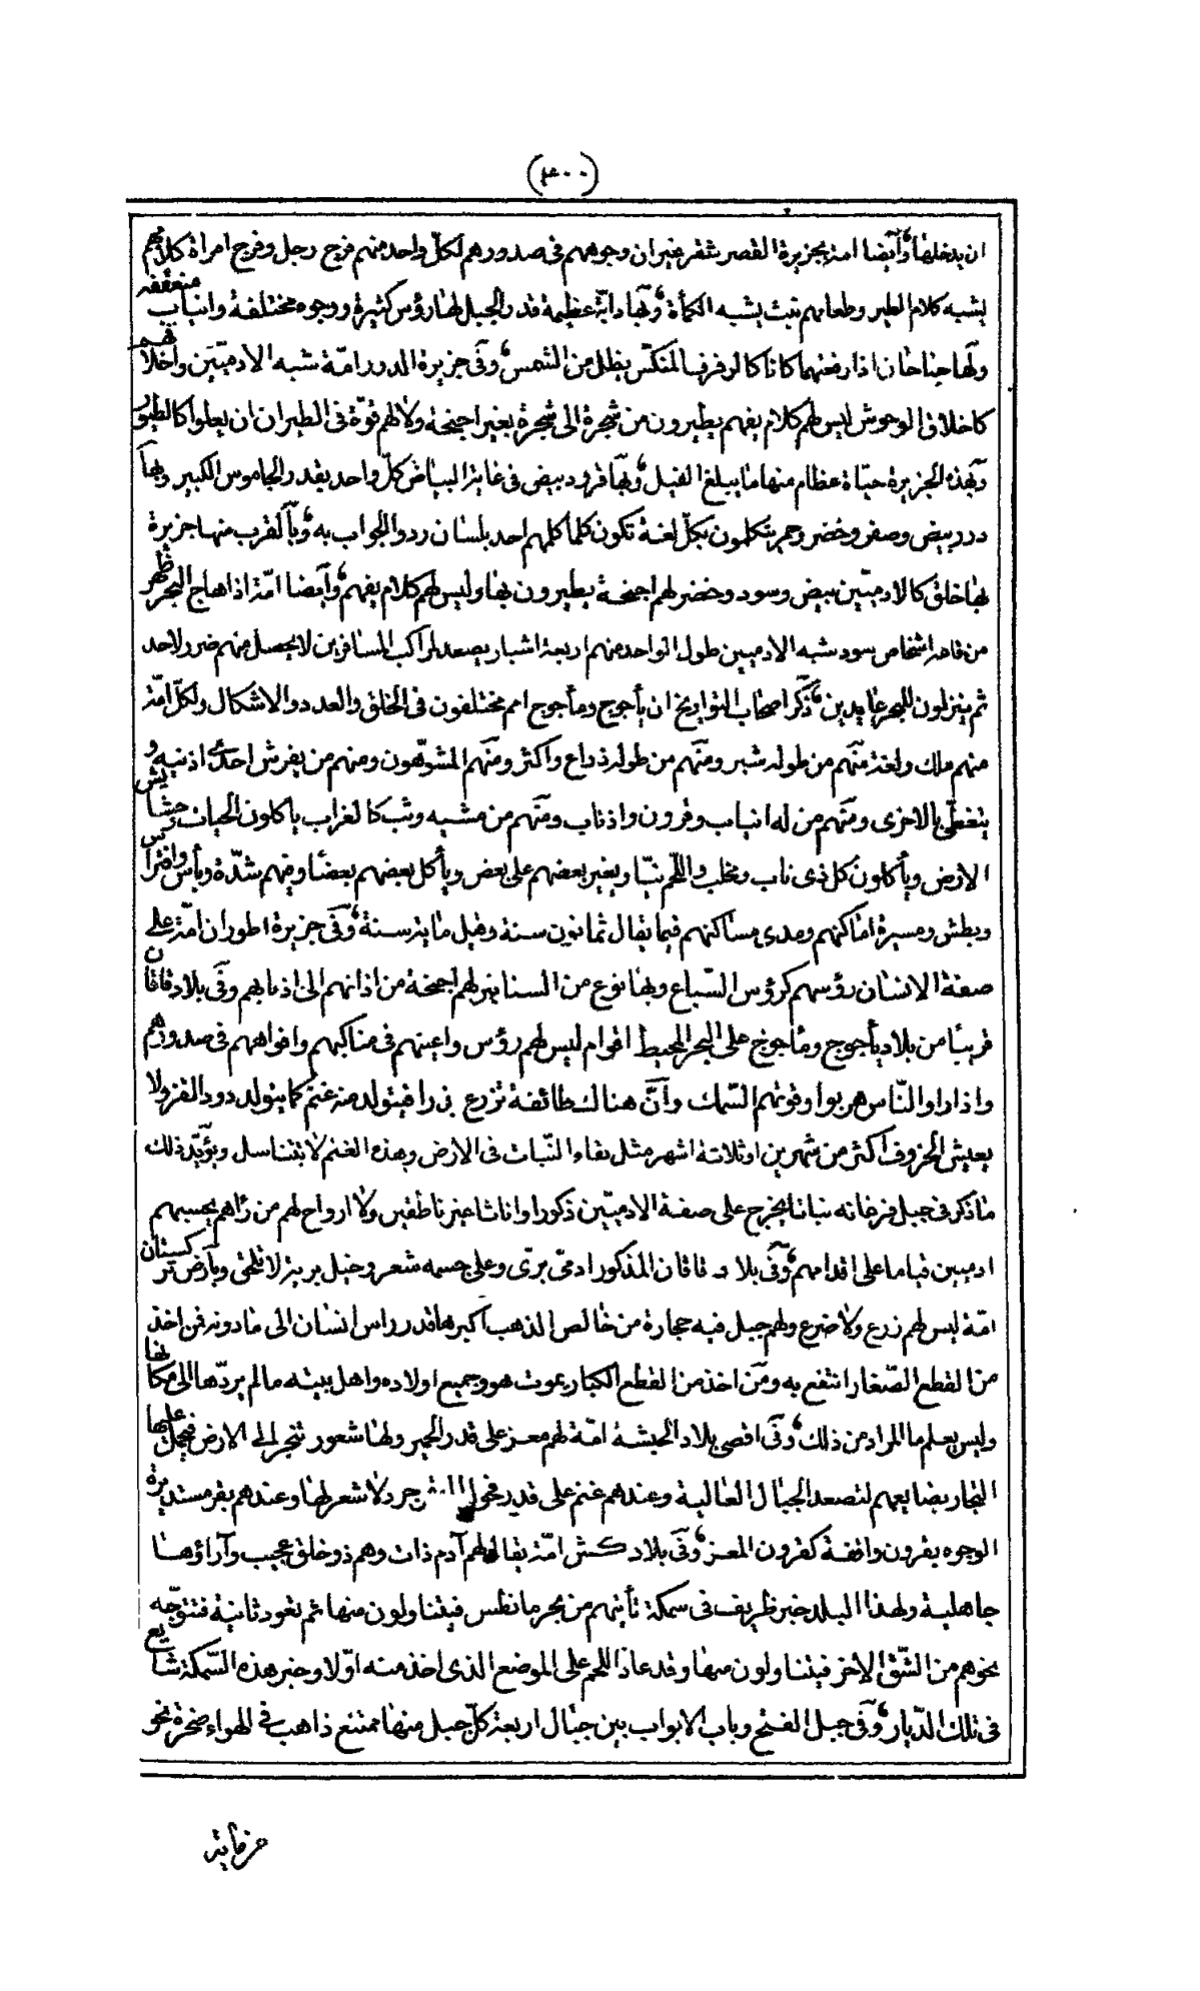 (٤٠٠)
ان يدخلها وأيضا امة بجزيرة القصر شقر غيران وجوههم فى صدورهم لكلّ واحد منهم فرج رجل وفرج امراة كلامهم
يشبه كلام الطير وطعامهم نبت يشبه الكمأة وبها دابّة عظيمة قدر الجبل لها رؤس كثيرة ووجوه مختلفة وانياب منعقفة
ولها جناحان اذا رفعتهما كانا كالرفرف المنكّس يظلل من الشمس وفى جزيرة الدور امّة شبه الادميّين واخلاقهم
كاخلاق الوحوش ليس لهم كلام يفهم يطيرون من شجرة الى شجرة بغير اجنحة ولا لهم قوّة فى الطيران ان يعلوا كالطيور
وبهذه الجزيرة حيّاة عظام منها ما يبلع الفيل وبها قرود بيض فى غاية البياض كلّ واحد بقدر الجاموس الكبير وبها
درر بيض وصفر وخضر وحمر يتكلمون بكلّ لغة تكون كلما كلمهم احد بلسان ردوا الجواب به وبالقرب منها جزيرة
بها خلق كالادميّين بيض وسود وخضر لهم اجنحة يطيرون بها وليس لهم كلام يفهم وأيضا امّة اذا هاج البحر ظهر
من قاعه اشخاص سود شبه الادميين طول الواحد منهم اربعة اشبار يصعد لمراكب المسافرين لا يحصل منهم ضرر لاحد
ثم ينزلون للبحر عايدين ذكر اصحاب التواريخ ان يأجوج ومأجوج امم مختلفون فى الخلق والعدد والاشكال ولكلّ امّة
منهم ملك ولغة منهم من طوله شبر ومنهم من طوله ذراع واكثر ومنهم المشوّهون ومنهم من يفرش احدى اذنيه و
يتغطّى بالاخرى ومنهم من له انياب وقرون واذناب ومنهم من مشيه وثب كالغراب ياكلون الحيات وحشايش
الارض ويأكلون كل ذى ناب ومخلب واللّحم نيّا ويغير بعضهم على بعض ويأكل بعضهم بعضا وفيهم شدّة وبأس وافتراس
وبطش ومسيرة اماكنهم ومدى مساكنهم فيما يقال ثمانون سنة وقيل مايتة سنة وفى جزيرة اطوران امّة على
صفة الانسان رؤسهم كرؤس السّباع وبها نوع من السنانير لهم اجنحة من اذانهم الى اذنابهم وفى بلاد قاقان
قريبًا من بلاد يأجوج ومأجوج على البحر المحيط اقوام ليس لهم رؤس واعينهم فى مناكبهم وافواههم فى صدورهم
واذا راوا النّاس هربوا وقوتهم السّمك وأنّ هناك طائفة تزرع بزرا فيتولد منه غنم كما يتولد دود القز ولا
يعيش الخروف اكثر من شهرين او ثلاثة اشهر مثل بقاء النّبات فى الارض وهذه الغنم لا يتناسل ويؤيّد ذلك
ما ذكر فى جبل فرغانه نباتا يخرج على صفة الادميّين ذكورا واناثا غير ناطقين ولا ارواح لهم من رآهم يحسبهم
ادميين قياما على اقدامهم وفى بلاد قاقان المذكور ادمى برّى وعلى جسمه شعر وخيل برية لا تلحق وبأرض تركستان
امّة ليس لهم زرع ولا ضرع ولهم جبل فيه حجارة من خالص الذهب اكبرها قدر راس انسان الى ما دونه فمن اخذ
من القطع الصّغار انتفع به ومن اخذ من القطع الكبار يموت هو وجميع اولاده واهل بيته ما لم يردّها الى مكانها
وليس يعلم ما المراد من ذلك وفى اقصى بلاد الحبشة امّة لهم معز على قدر الحمير ولها شعور تنجر الى الارض فيحمل عليها
التجار بضايعهم لتصعد الجبال العالية وعندهم غنم على قدر فحول جرد لا شعر لها وعندهم بقر مستديرة
الوجوه بقرون واقفة كقرون المعز وفى بلاد كش امّة يقال لهم آدم ذات وهم ذو خلق عجيب وآراؤها
جاهلية ولهذا البلد خبر ظريف فى سمكة تأتيهم من بحر مانطس فيتناولون منها ثم تعود ثانية فتتوجّه
نحوهم من الشّق الاخر فيتناولون منها وقد عاد اللحم على الموضع الذى اخذ منه اوّلا وخبر هذه السّمكة شايع
فى تلك الدّيار وفى جبل الفتح وباب الابواب بين جبال اربعة كلّ جبل منها ممتنع ذاهب فى الهواء صخرة نحو